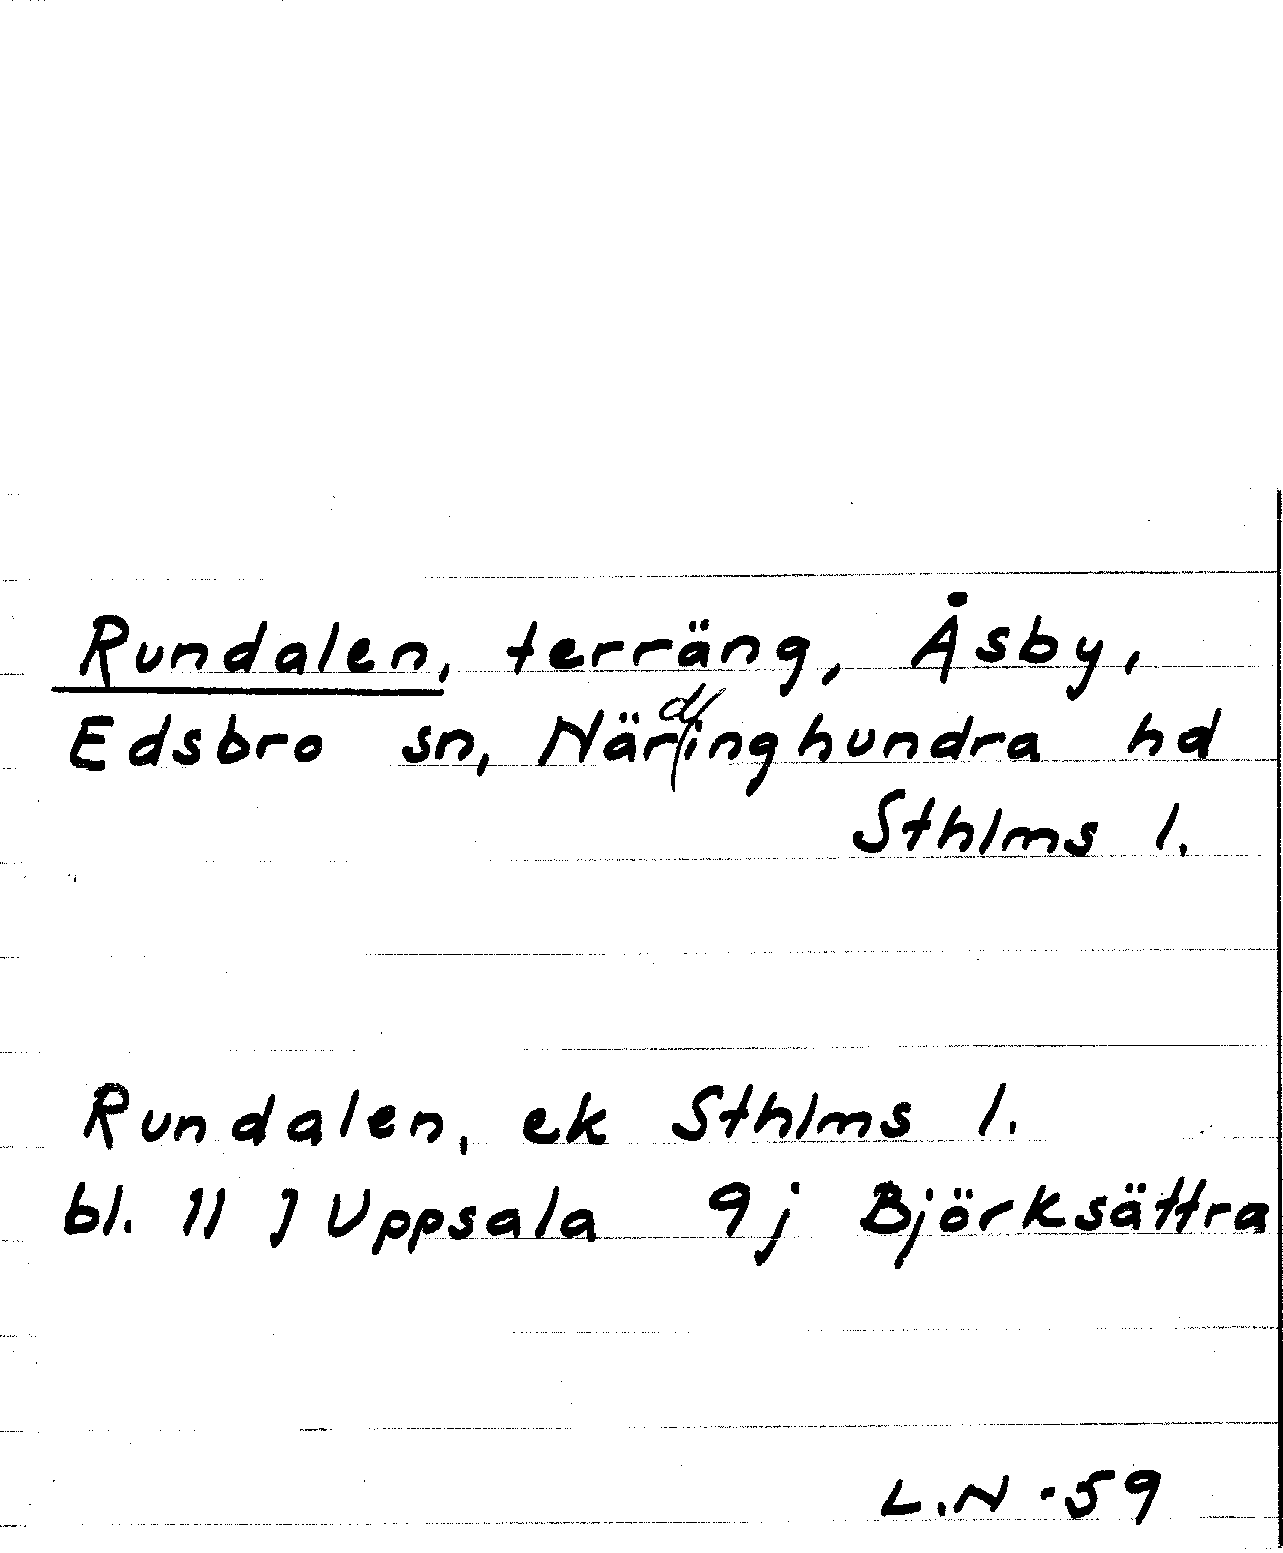 Rundalen, terräng, Åsby,
Edsbro sn, Närdinghundra hd
Sthlms l.
Rundalen, ek Sthlms l.
bl. 11 J Uppsala 9j Björksättra
L.N -59